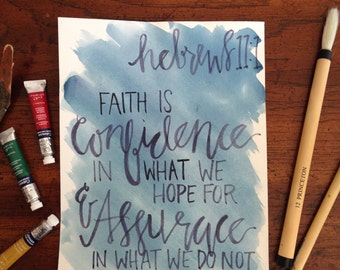 hebrews 11:1
FAITH IS
Confidence
IN WHAT WE
HOPE FOR
& Assurace
IN WHAT WE DO NOT
12 PRINCETON